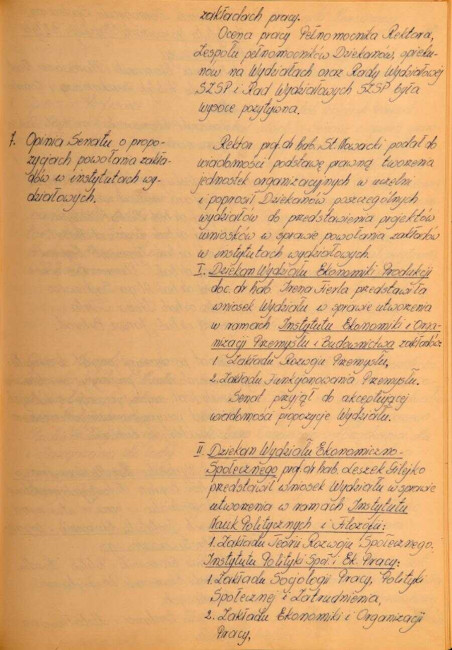 zakładach pracy.
Ocena pracy Pełnomocnika Rektora,
Zespołu pełnomocników Dziekanów, opieku-
nów na Wydziałach oraz Rady Wydziałowej
SZSP i Rad Wydziałowych SZSP była
wysoce pozytywna.
7. Opinia Senatu o propo-
zycjach powołania zakła-
dów w instytutach wy-
działowych.
Rektor prof. dr hab. St. Nowacki podał do
wiadomości podstawę prawną tworzenia
jednostek organizacyjnych w uczelni
i poprosił Dziekanów poszczególnych
wydziałów do przedstawienia projektów
wniosków w sprawie powołania zakładów
w instytutach wydziałowych.
I. Dziekan Wydziału Ekonomiki Produkcji
doc. dr hab. Irena Fierla przedstawiła
wniosek Wydziału w sprawie utworzenia
w ramach Instytutu Ekonomiki i Orga-
nizacji Przemysłu i Budownictwa zakładów:
1. Zakładu Rozwoju Przemysłu,
2. Zakładu Funkcjonowania Przemysłu.
Senat przyjął do akceptującej
wiadomości propozycje Wydziału.
II. Dziekan Wydziału Ekonomiczno-
Społecznego prof. dr hab. Leszek Gilejko
przedstawił wniosek Wydziału w sprawie
utworzenia w ramach Instytutu
Nauk Politycznych i Filozofii:
1. Zakładu Teorii Rozwoju Społecznego.
Instytutu Polityki Społ. i Ek. Pracy:
1. Zakładu Socjologii Pracy, Polityki
Społecznej i Zatrudnienia,
2. Zakładu Ekonomiki i Organizacji
Pracy,